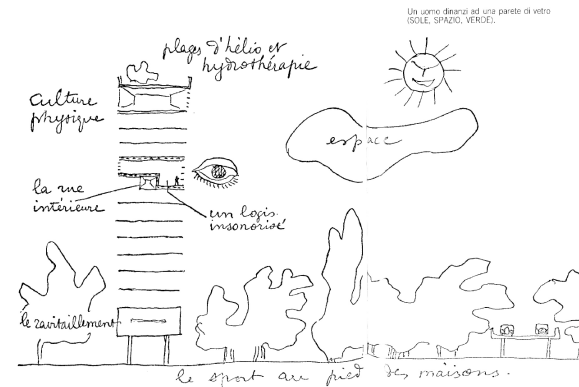 Un uomo dinanzi ad una parete di vetro
(SOLE, SPAZIO, VERDE).
plages d'hélio et
hydrothérapie
culture
physique
espace
la rue
intérieure
un logis
insonorisé
le ravitaillement
le sport au pied des maisons.